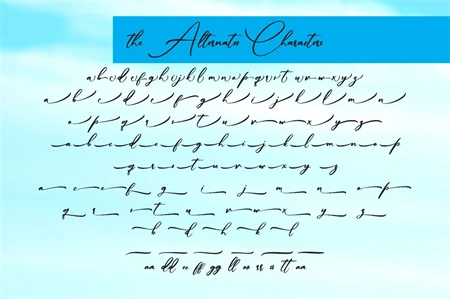 the Alternates Characters
abcdefghijklmnopqrstuvwxyz
abcdefghijklmn
opqrstuvwxyz
abcdefghijklmnop
qrstuvwxyz
a c e f g i j m n o p
q r s t u v w x y z
b d h k l
aa dd ee ff gg ll oo rr ss tt